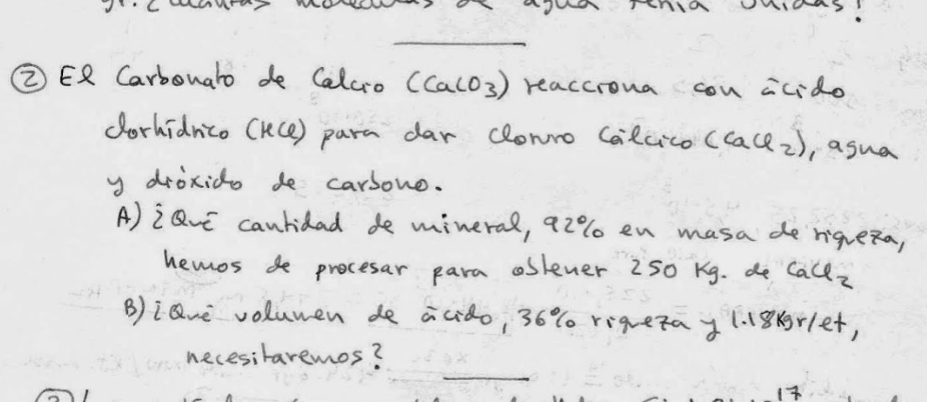 gr. ¿Cuántas moléculas de agua tenía unidas?
② El Carbonato de Calcio (CaCO3) reacciona con ácido
clorhídrico (HCl) para dar Cloruro Cálcico (CaCl2), agua
y dióxido de carbono.
A) ¿Qué cantidad de mineral, 92% en masa de riqueza,
hemos de procesar para obtener 250 Kg. de CaCl2
B) ¿Qué volumen de ácido, 36% riqueza y 1.18 Kgr/et,
necesitaremos?
17